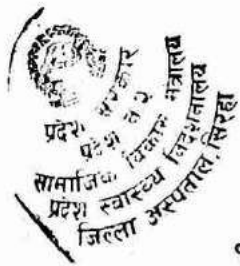 प्रदेश सरकार
प्रदेश नं २
सामाजिक विकास मंत्रालय
प्रदेश स्वास्थ्य निर्देशनालय
जिल्ला अस्पताल, सिरहा